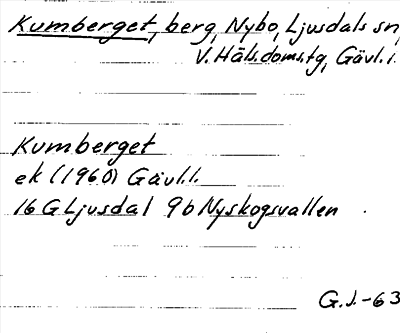 Kumberget, berg, Nybo, Ljusdals sn,
V. Häls.doms.tg, Gävl. l.
Kumberget
ek (1960) Gävl.l.
16 G Ljusdal 9b Nyskogsvallen
G.J. -63